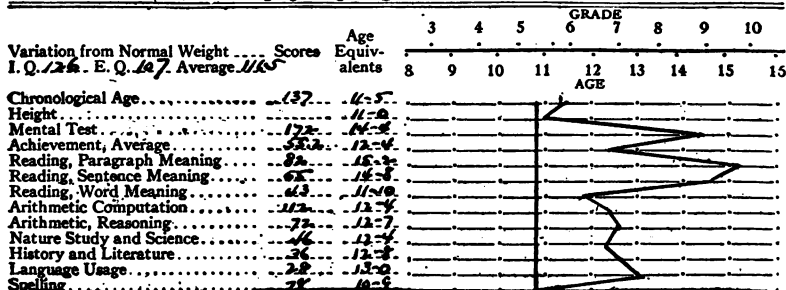 GRADE
3 4 5 6 7 8 9 10
Age
Variation from Normal Weight .... Scores Equiv-
I. Q. 126 E. Q. 107 Average 116.5 alents 8 9 10 11 12 13 14 15 16
AGE
Chronological Age 137 11-5
Height 11-0
Mental Test 172 14-4
Achievement, Average 55.2 12-4
Reading, Paragraph Meaning 82 15-2
Reading, Sentence Meaning 65 14-8
Reading, Word Meaning 63 11-10
Arithmetic Computation 112 12-4
Arithmetic, Reasoning 72 12-7
Nature Study and Science 46 12-4
History and Literature 36 12-8
Language Usage 28 13-0
Spelling